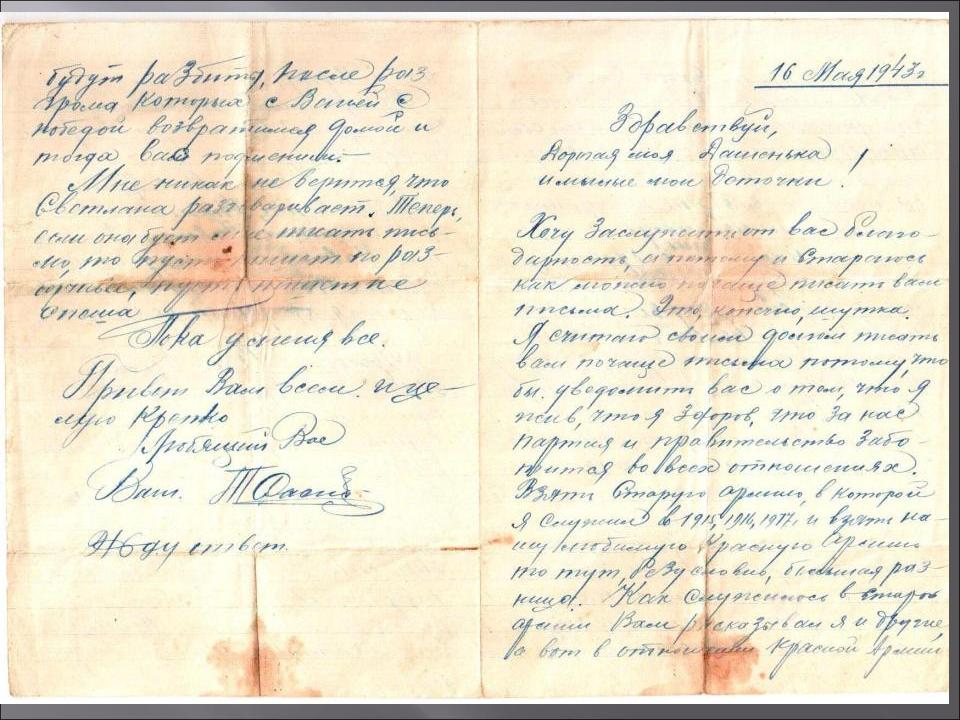 16 Мая 1943 г
Здравствуй,
Дорогая моя Дашенька
и милые мои деточки!
Хочу заслужить от вас благо-
дарность, а потому и стараюсь
как можно почаще писать вам
письма. Это, конечно, шутка.
Я считаю своим долгом писать
вам почаще письма потому, что
бы уведомить вас о том, что я
жив, что я здоров, что за нас
партия и правительство забо-
тится во всех отношениях.
Взять старую армию, в которой
я служил в 1915, 1916, 1917 г. и взять на-
шу любимую Красную Армию
то тут, безусловно, большая раз-
ница. Как служилось в старой
армии Вам рассказывал я и другие,
а вот в отношении Красной Армии
будут разбиты, после раз
грома которых с Вашей с
победой возвратимся домой и
тогда вас
Мне никак не верится, что
Светлана разговаривает. Теперь,
если она будет мне писать пись-
мо, то пусть пишет по раз-
борчивей, пусть пишет не
спеша
Пока у меня все.
Привет Вам всем и це-
лую крепко
Любящий Вас
Ваш.
Жду ответ.